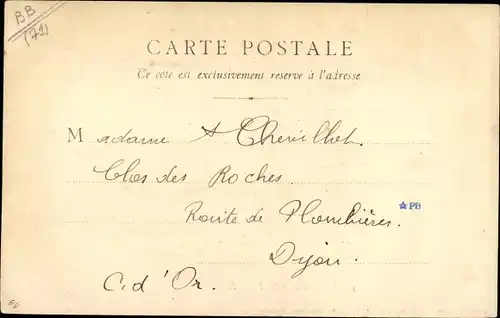 BB
(79)
CARTE POSTALE
Ce côté est exclusivement réservé à l'adresse
Madame A Chevillot.
Clos des Roches.
Route de Plombières.
☆PB
Dijon.
C. d'Or.